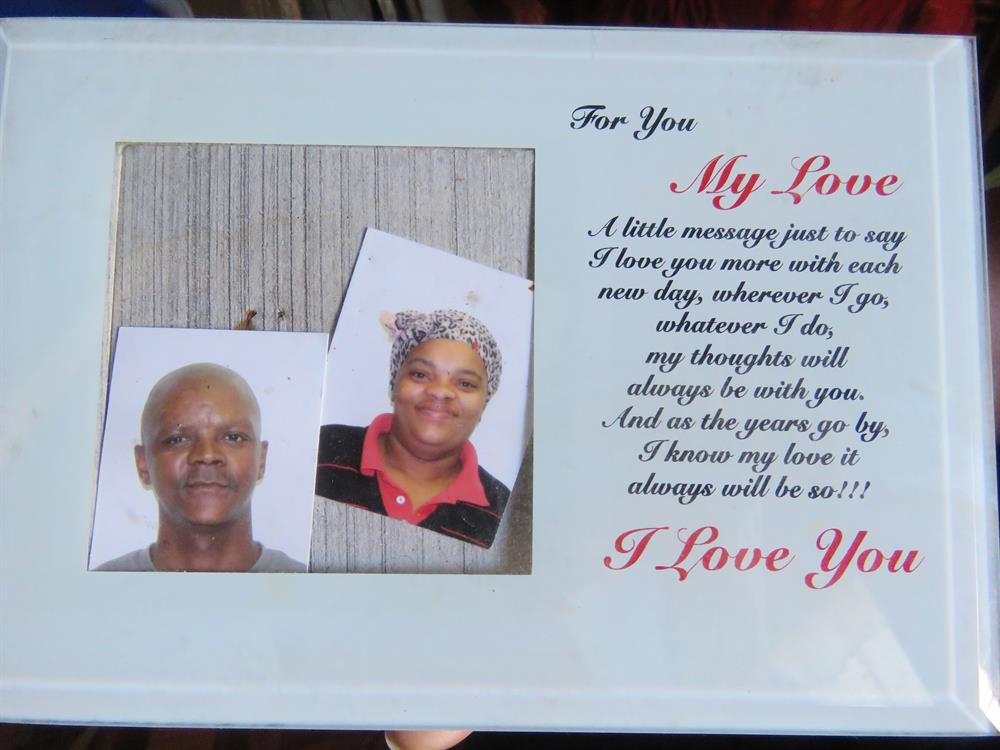 For You
My Love
A little message just to say
I love you more with each
new day, wherever I go,
whatever I do,
my thoughts will
always be with you.
And as the years go by,
I know my love it
always will be so!!!
I Love You